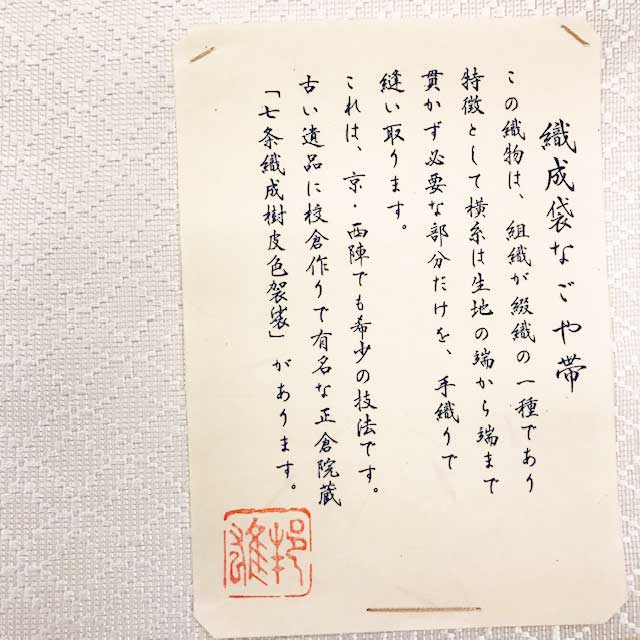 織成袋なごや帯
この織物は、組織が綴織の一種であり
特徴として横糸は生地の端から端まで
貫かず必要な部分だけを、手織りで
縫い取ります。
これは、京・西陣でも希少の技法です。
古い遺品に校倉作りで有名な正倉院蔵
「七条織成樹皮色袈裟」があります。